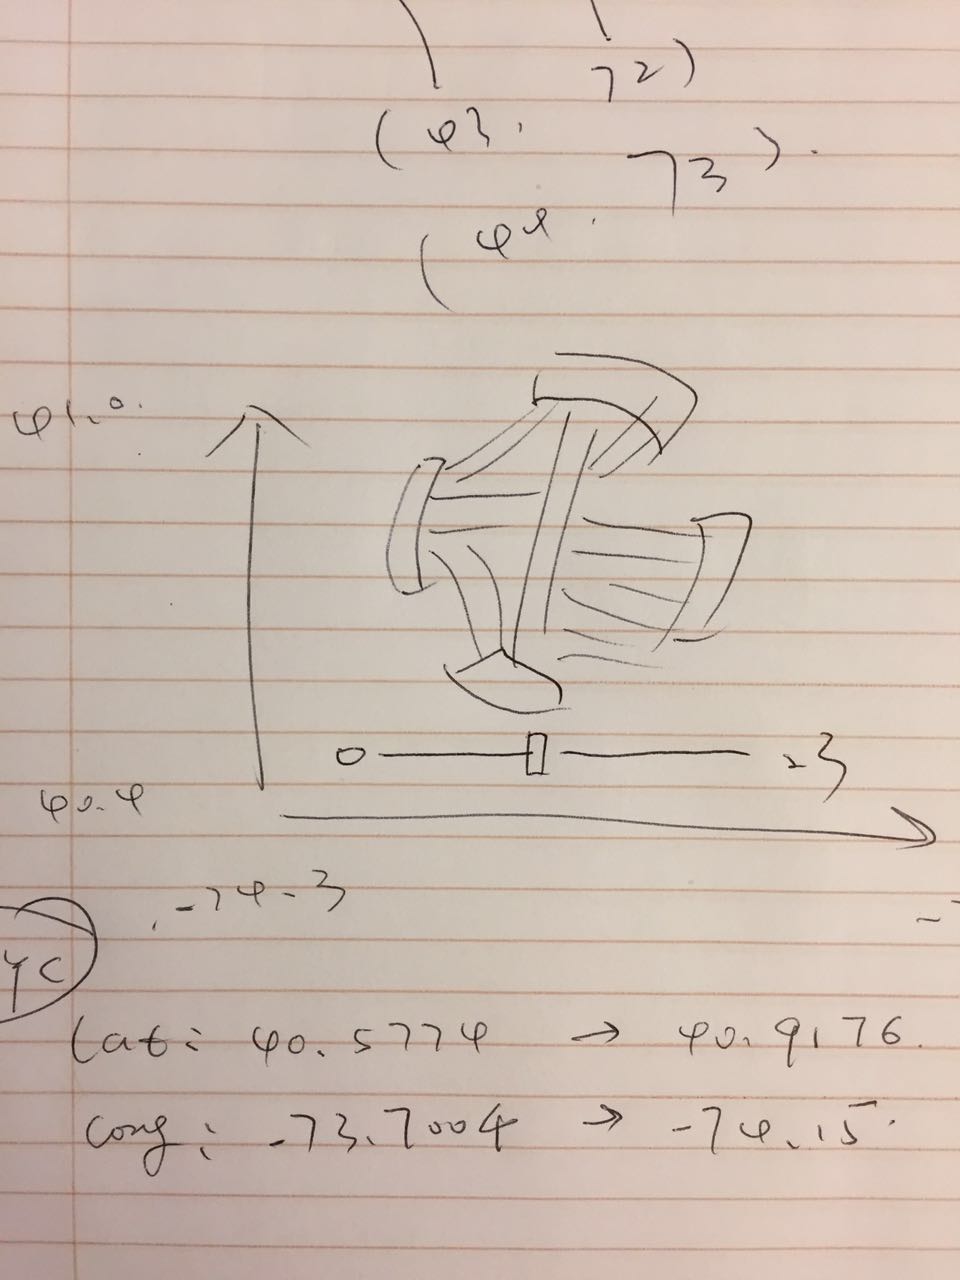 72)
(43,
73).
(44.
41.0.
0
-3
40.4
-74-3
-
YC
Lat: 40.5774 → 40.9176.
Long: -73.7004 → -74.15.